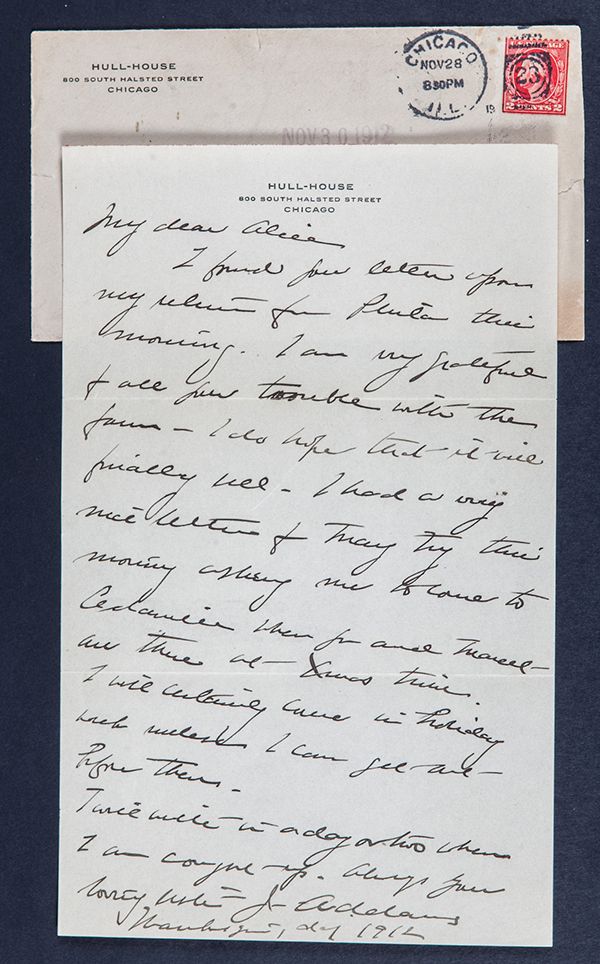 HULL-HOUSE
800 SOUTH HALSTED STREET
CHICAGO
CHICAGO
NOV 28
830PM
ILL.
19
23
2 CENTS 2
NOV 30 1912
HULL-HOUSE
800 SOUTH HALSTED STREET
CHICAGO
My dear Alice
I found your letter upon
my return from this
morning. I am very grateful
for all your trouble with the
farm - I do hope that it will
finally sell - I had a very
nice letter from Mary this
morning asking me to come to
Cedarville when you and Marcet
are there at Xmas time.
I will certainly come in holiday
week unless I can get out
before then.
I will write in a day or two when
I am caught up. Always your
loving sister J. Addams
Thanksgiving day 1912